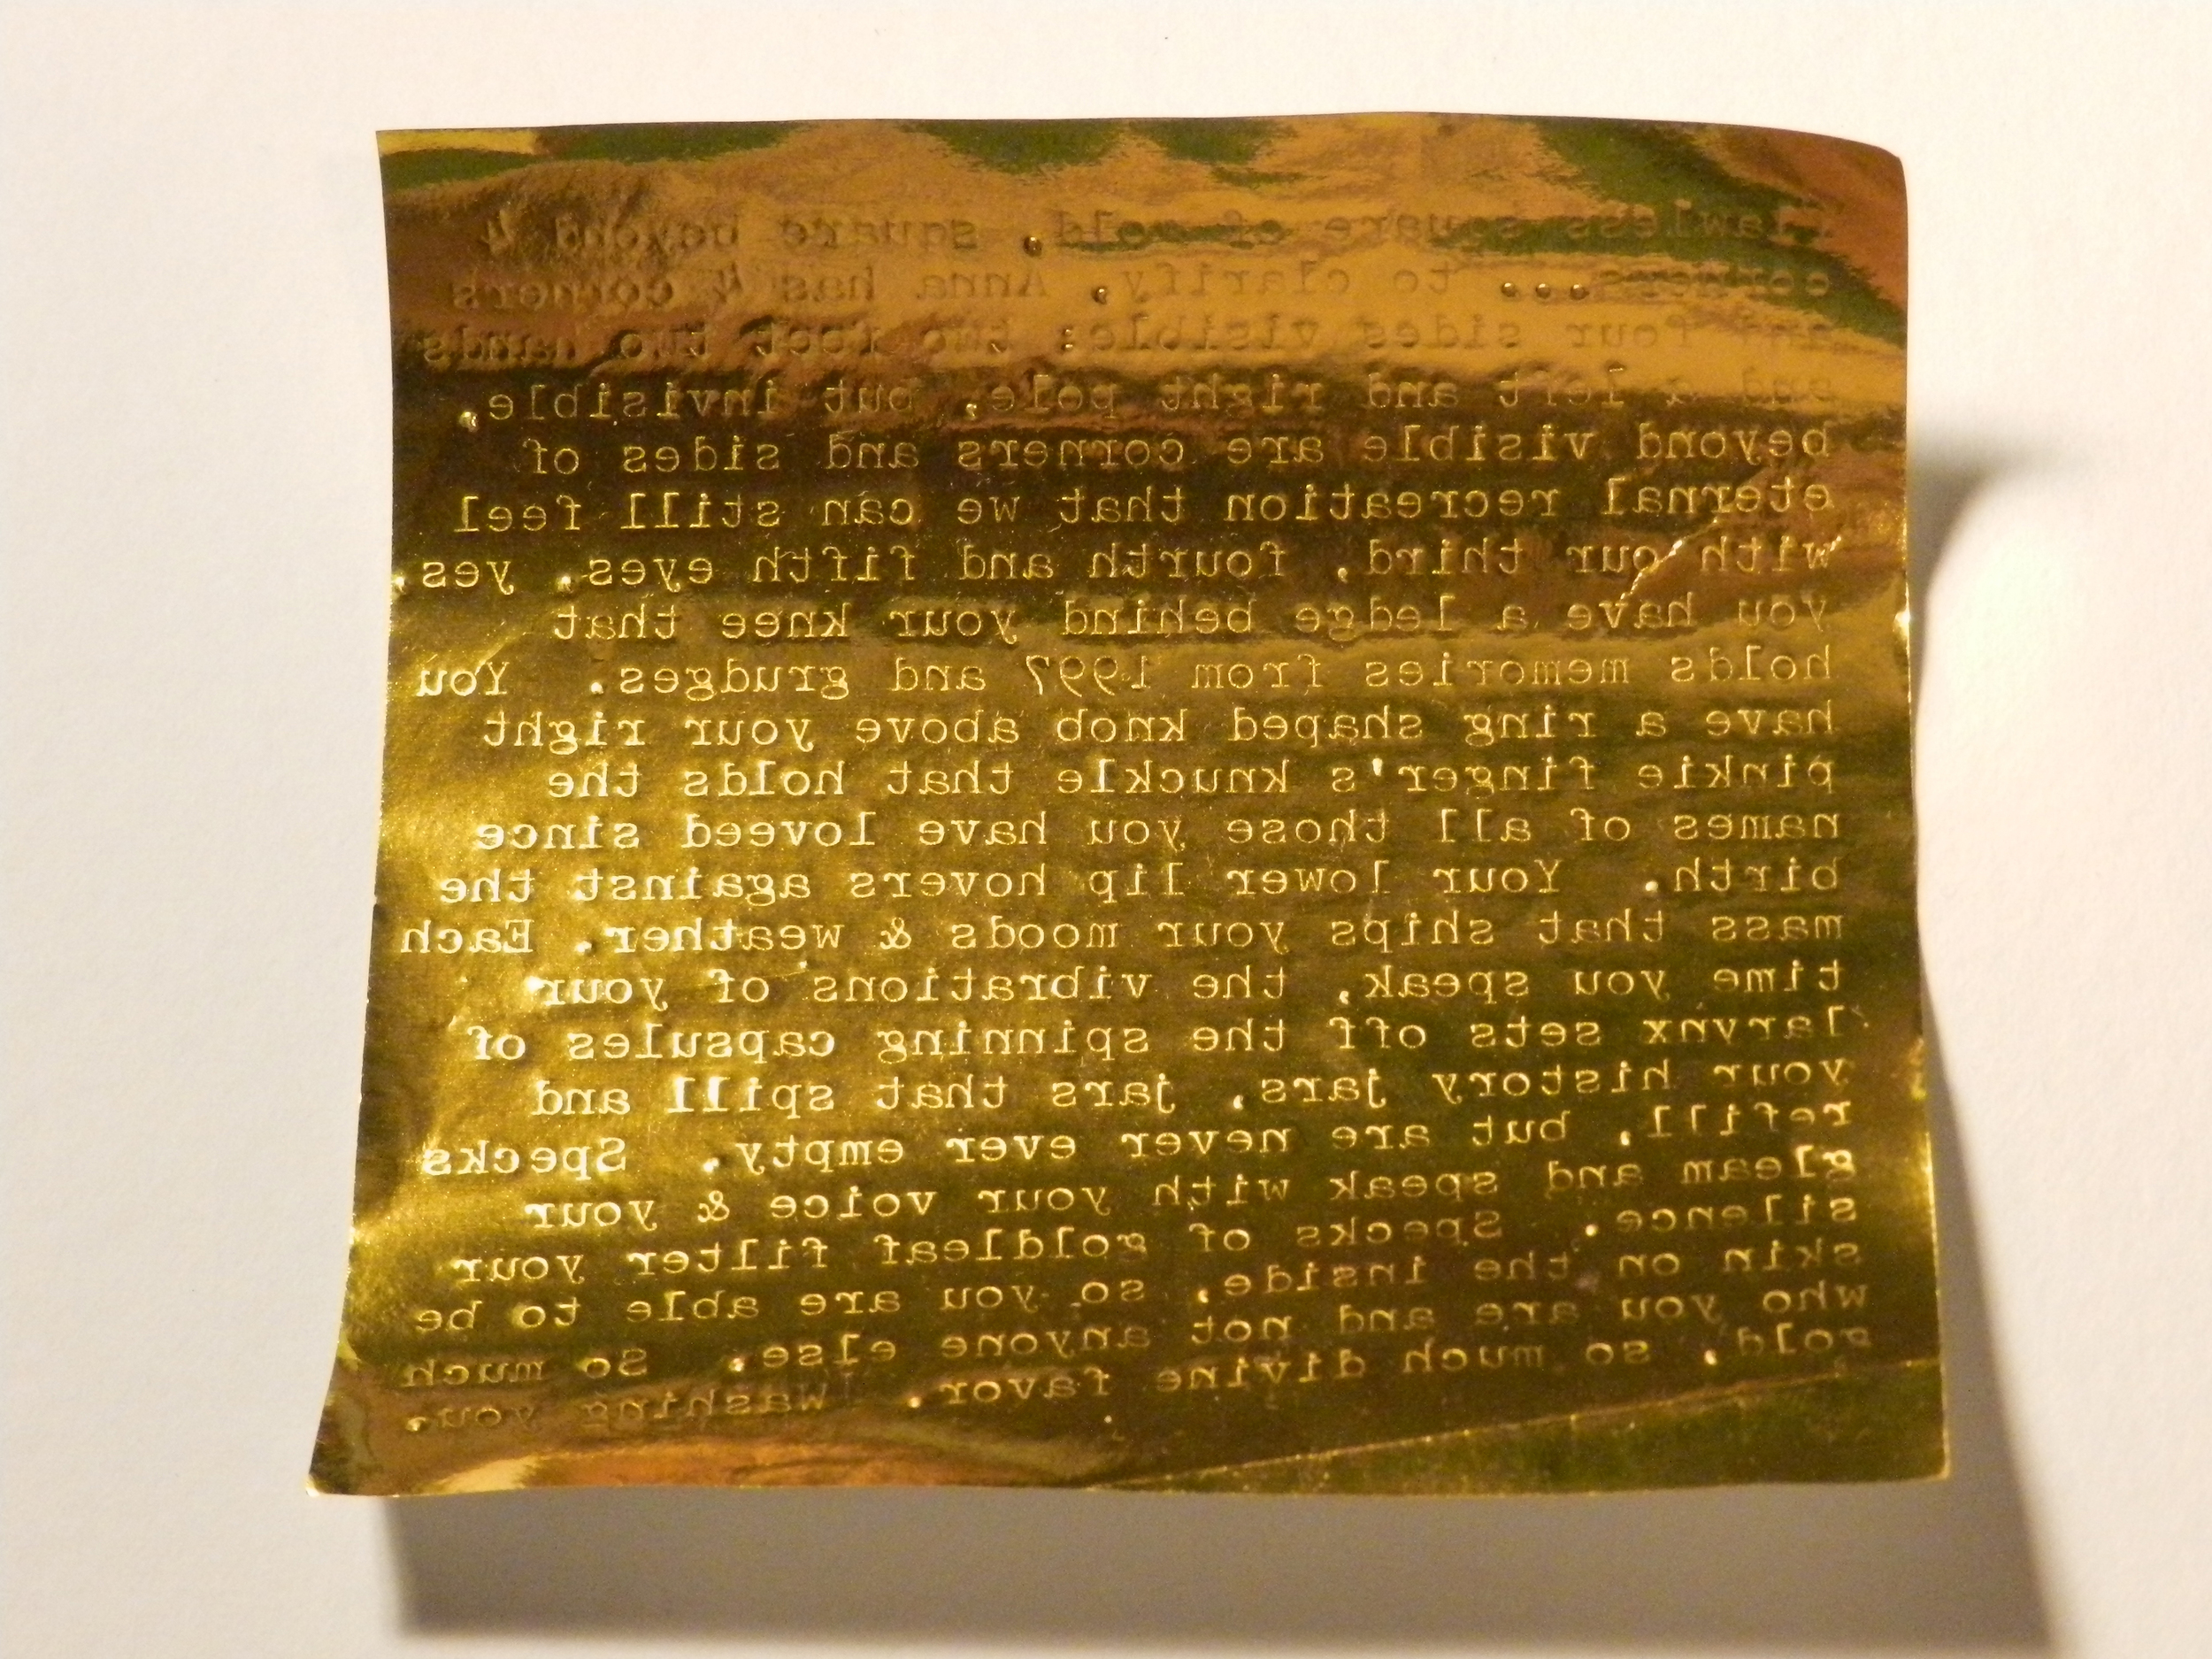 flawless square of gold, square beyond 4
corners... to clarify, Anna has 4 corners
and four sides visible: two feet two hands
and a left and right pole, but invisible,
beyond visible are corners and sides of
eternal recreation that we can still feel
with our third, fourth and fifth eyes, yes,
you have a ledge behind your knee that
holds memories from 1997 and grudges. You
have a ring shaped knob above your right
pinkie finger's knuckle that holds the
names of all those you have loveed since
birth. Your lower lip hovers against the
mass that ships your moods & weather. Each
time you speak, the vibrations of your
larynx sets off the spinning capsules of
your history jars, jars that spill and
refill, but are never ever empty. Specks
gleam and speak with your voice & your
silence. Specks of goldleaf filter your
skin on the inside, so you are able to be
who you are and not anyone else. So much
gold, so much divine favor. Washing you.